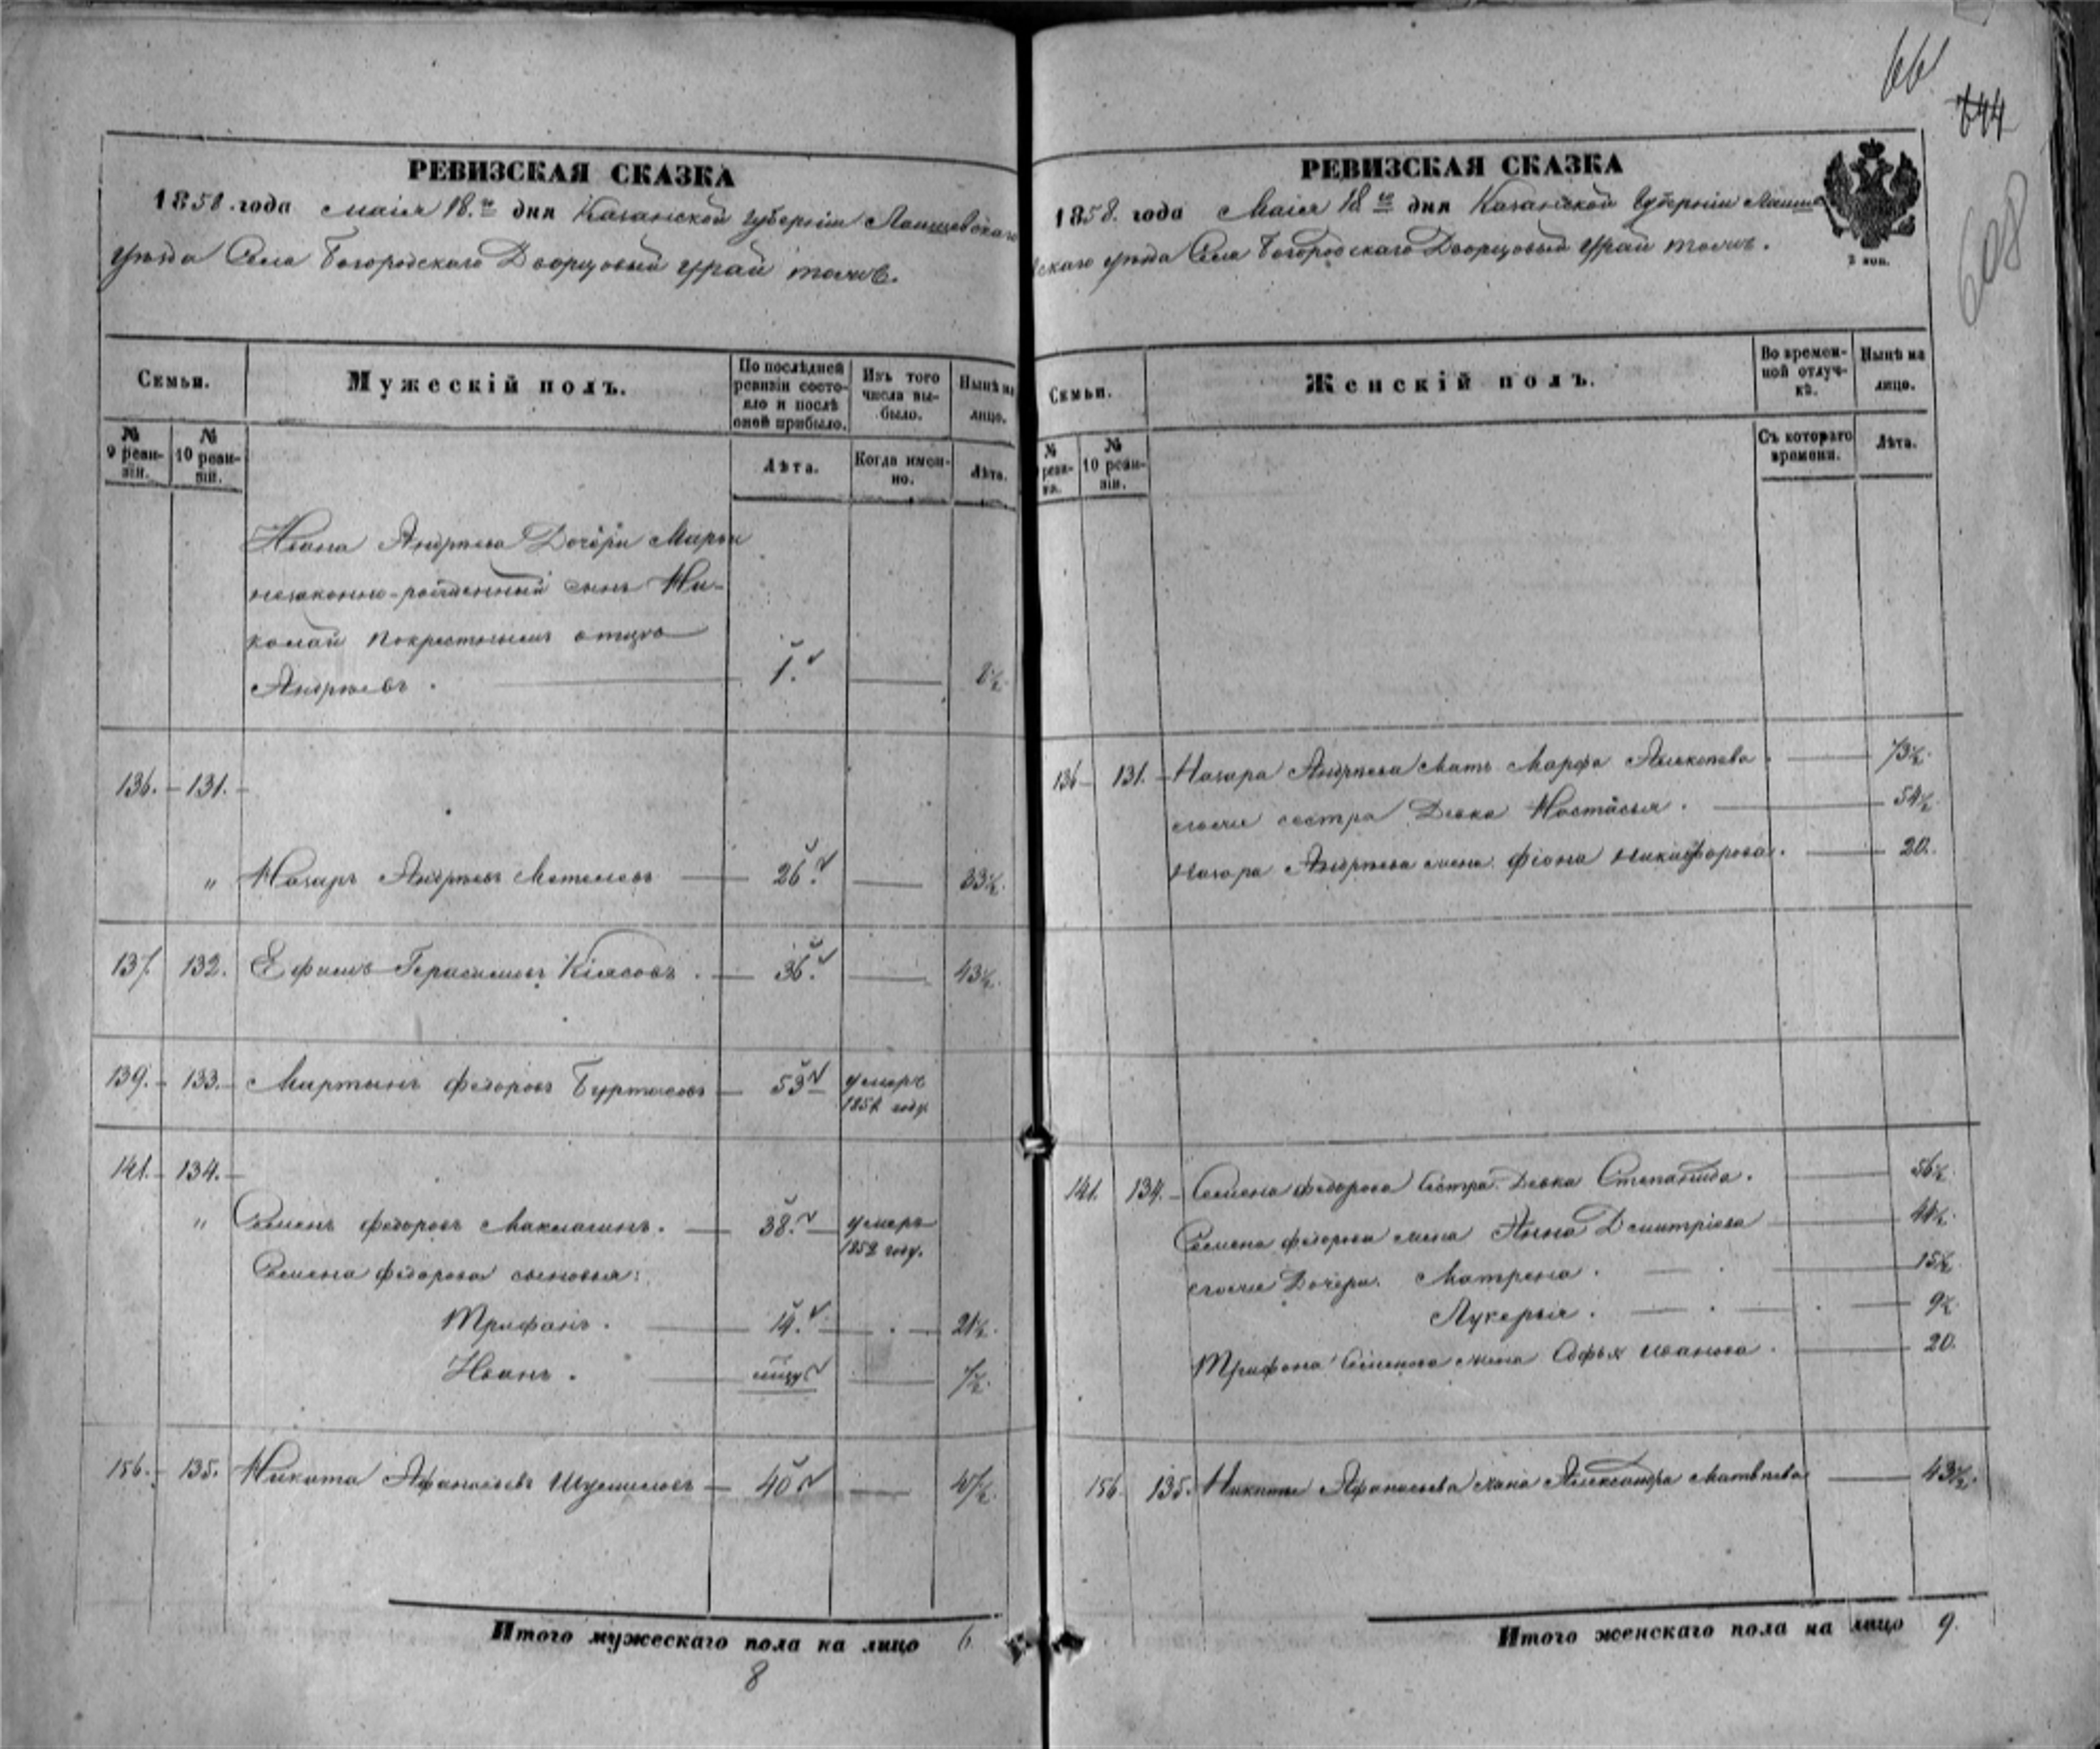 66
644
608
РЕВИЗСКАЯ СКАЗКА
1858 года маія 18.го дня Казанской губерніи Лаишевскаго
уѣзда Села Богородскаго Дворцовый Урай тожъ.
Семьи.
Мужескій полъ.
По послѣдней ревизіи состояло и послѣ оной прибыло.
Изъ того числа выбыло.
Нынѣ на лицо.
№ 9 ревизіи.
№ 10 ревизіи.
Лѣта.
Когда именно.
Лѣта.
Ивана Андреева Дочери Марьи
незаконно-рожденный сынъ Ни-
колай по крестномъ отцѣ
Андреевъ. 1. 8½
136. 131.
" Назаръ Андреевъ 26. 33½
137. 132. Ефимъ Герасимовъ 36. 43½
139. 133. Мартынъ Федоровъ Буртасовъ 53 умеръ
году
141. 134.
" Семенъ Федоровъ 38. умеръ
1858 году.
Семена Федорова сыновья:
Трифонъ. 14. 21½
Иванъ. 7½
156. 135. Никита Афанасьевъ Шумиловъ 40 47½
Итого мужескаго пола на лицо 6
8
РЕВИЗСКАЯ СКАЗКА
1858. года Маія 18 го дня Казанской Губерніи Лаише
скаго уѣзда Села Богородскаго Дворцовый Урай тожъ.
2 коп.
Семьи.
Женскій полъ.
Во временной отлучкѣ.
Нынѣ на лицо.
№ реви-
№ 10 ревизіи.
Съ котораго времени.
Лѣта.
136 131. Назара Андреева Мать Марфа 73½
сестра Девка Настасья. 54½
Назара Андреева жена Фіона Никифорова. 20.
141. 134. Семена Федорова Сестра Девка Степанида. 56½
Семена Федорова жена Анна Дмитріева 44½
Дочери. Матрена. 15½
Лукерья. 9½
Трифона Семенова жена Софья Иванова. 20.
156. 135. Никиты Афанасьева жена Александра Матвѣева 43½
Итого женскаго пола на лицо 9.